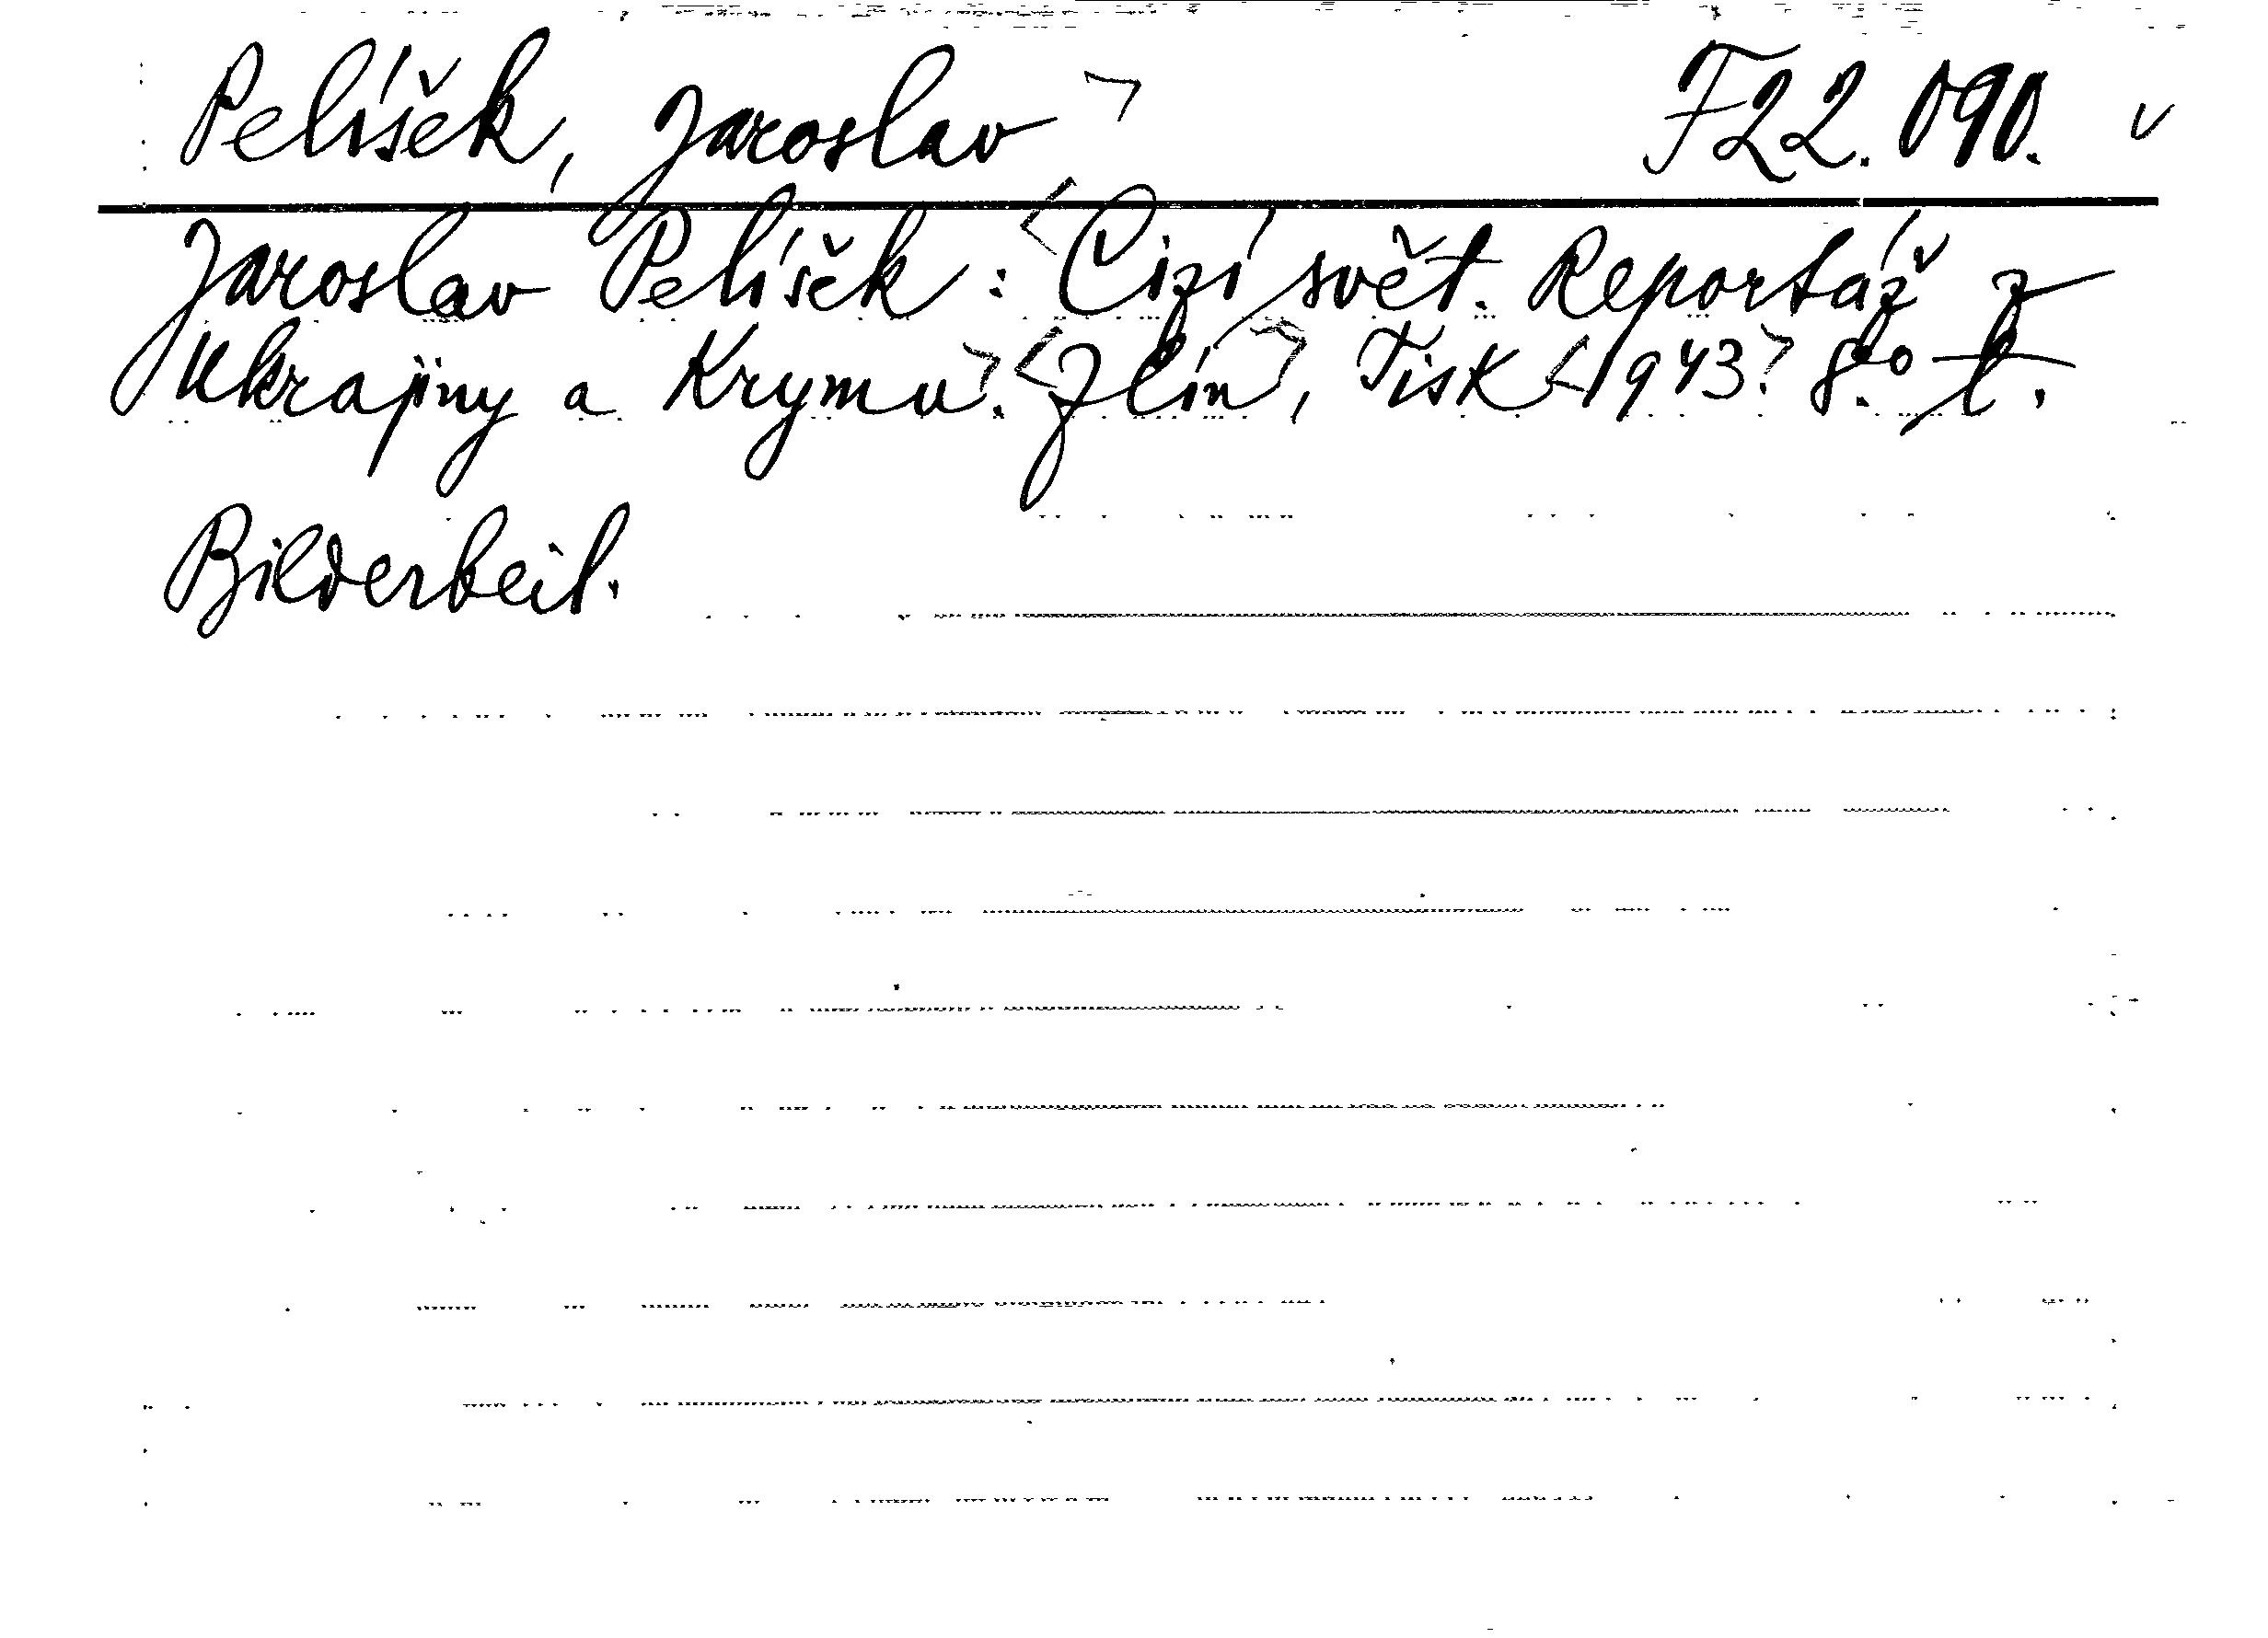 Pelíšek, Jaroslav F22.090.
Jaroslav Pelíšek: Cizí svět. Reportáž z
Ukrajiny a Krymu. Zlín, Tisk 1943. 8.°
Bilderbeil.